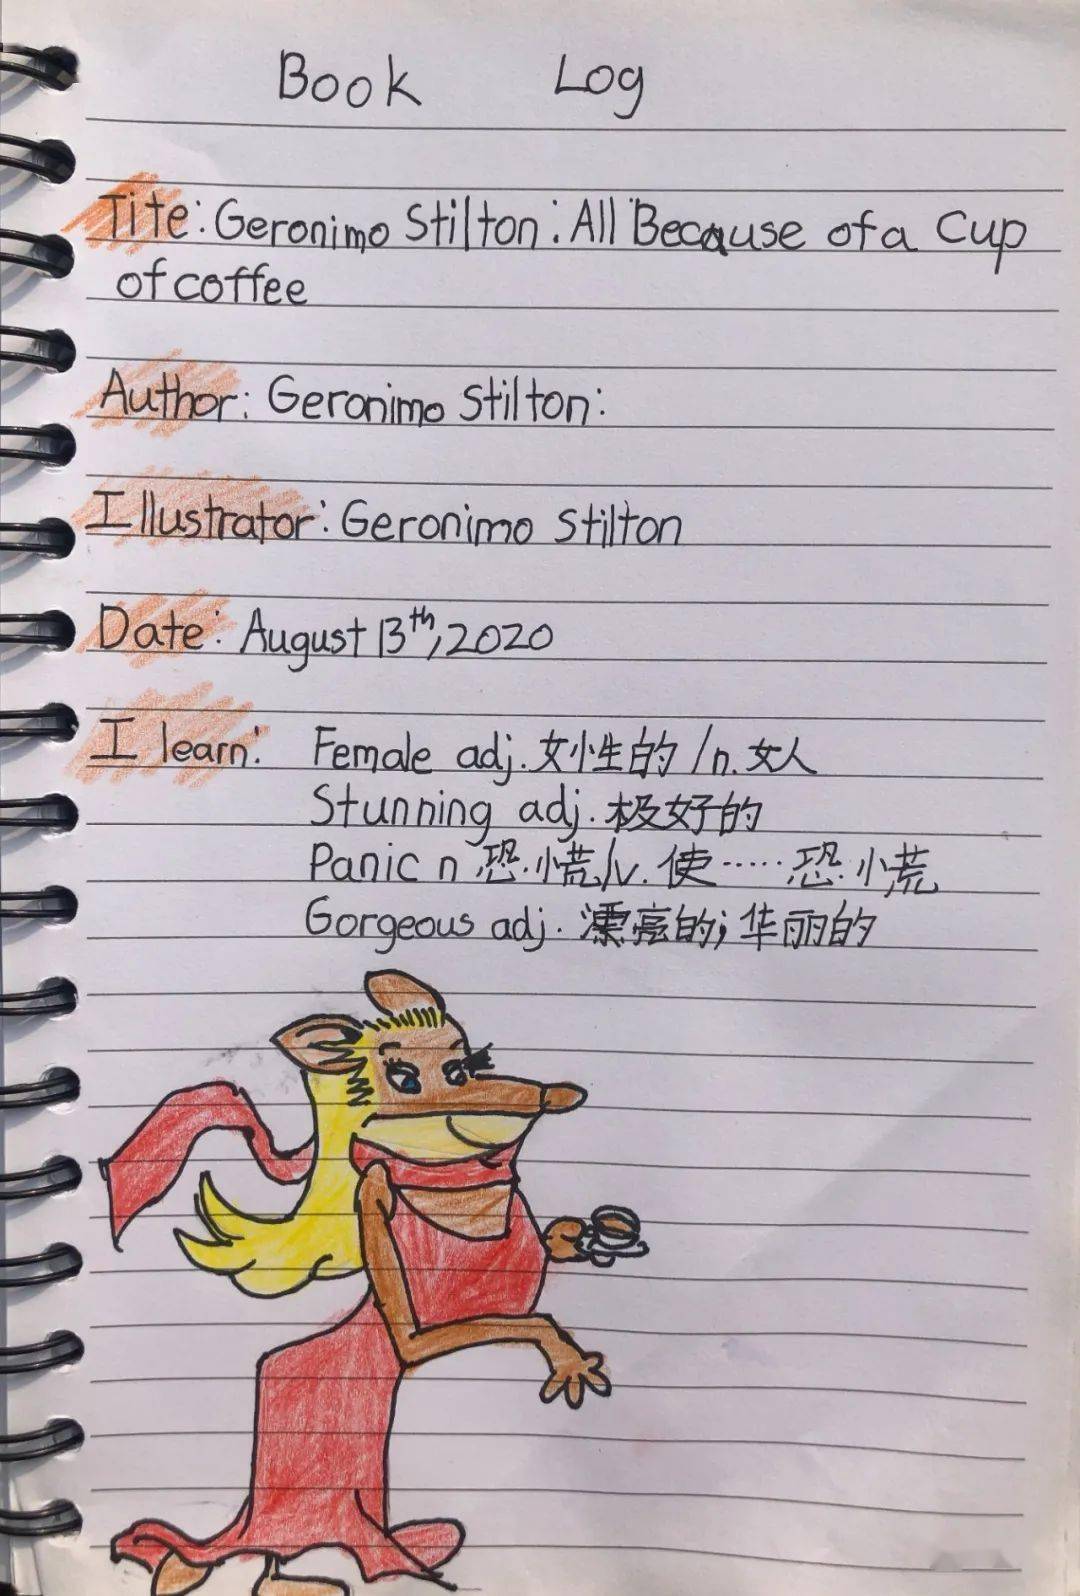 Book Log
Tite: Geronimo Stilton: All Because of a Cup
of coffee
Author: Geronimo Stilton:
Illustrator: Geronimo Stilton
Date: August 13th, 2020
I learn: Female adj. 女性的 /n. 女人
Stunning adj. 极好的
Panic n 恐慌/v. 使……恐慌
Gorgeous adj. 漂亮的; 华丽的